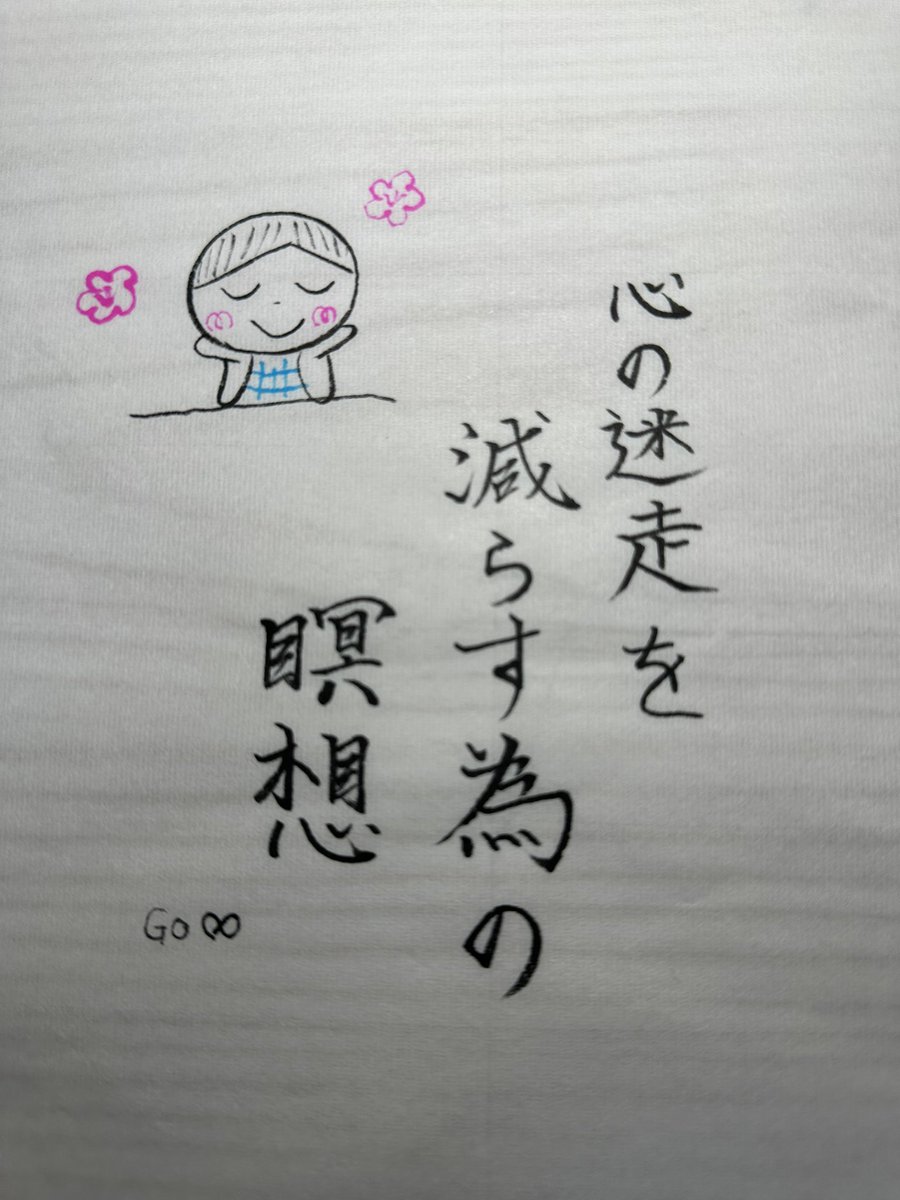 心の迷走を
減らす為の
瞑想
Go∞